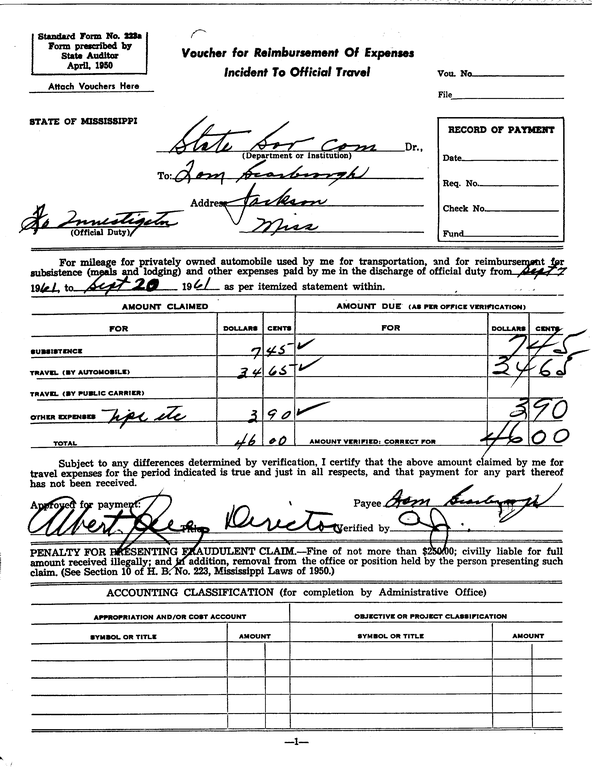 Standard Form No. 223a
Form prescribed by
State Auditor
April, 1950
Attach Vouchers Here
Voucher for Reimbursement Of Expenses
Incident To Official Travel
Vou. No.
File
STATE OF MISSISSIPPI
State Sov Com Dr.,
(Department or Institution)
To: Tom Scarbrough
Address Jackson
Miss
Investigator
(Official Duty)
RECORD OF PAYMENT
Date
Req. No.
Check No.
Fund
For mileage for privately owned automobile used by me for transportation, and for reimbursement for
subsistence (meals and lodging) and other expenses paid by me in the discharge of official duty from Sept 7
1961, to Sept 20 1961 as per itemized statement within.
AMOUNT CLAIMED AMOUNT DUE (AS PER OFFICE VERIFICATION)
FOR DOLLARS CENTS FOR DOLLARS CENTS
SUBSISTENCE 7 45 ✓ 7 45
TRAVEL (BY AUTOMOBILE) 34 65 ✓ 34 65
TRAVEL (BY PUBLIC CARRIER)
OTHER EXPENSES Tips etc 3 90 ✓ 3 90
TOTAL 46 00 AMOUNT VERIFIED: CORRECT FOR 46 00
Subject to any differences determined by verification, I certify that the above amount claimed by me for
travel expenses for the period indicated is true and just in all respects, and that payment for any part thereof
has not been received.
Approved for payment: Payee Tom Scarbrough
Albert Director Verified by
PENALTY FOR PRESENTING FRAUDULENT CLAIM.—Fine of not more than $250.00; civilly liable for full
amount received illegally; and in addition, removal from the office or position held by the person presenting such
claim. (See Section 10 of H. B. No. 223, Mississippi Laws of 1950.)
ACCOUNTING CLASSIFICATION (for completion by Administrative Office)
APPROPRIATION AND/OR COST ACCOUNT OBJECTIVE OR PROJECT CLASSIFICATION
SYMBOL OR TITLE AMOUNT SYMBOL OR TITLE AMOUNT
—1—